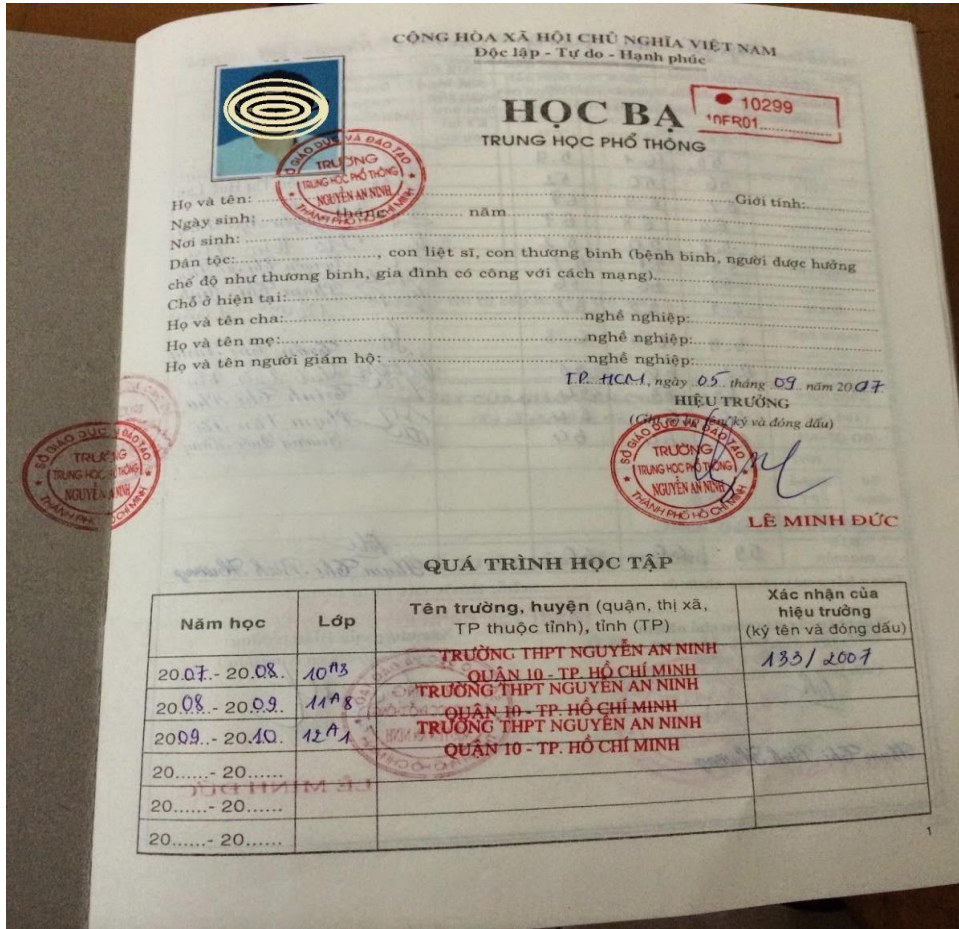 CỘNG HÒA XÃ HỘI CHỦ NGHĨA VIỆT NAM
Độc lập - Tự do - Hạnh phúc
HỌC BẠ
10299
10FR01
TRUNG HỌC PHỔ THÔNG
SỞ GIÁO DỤC VÀ ĐÀO TẠO
TRƯỜNG
TRUNG HỌC PHỔ THÔNG
NGUYỄN AN NINH
THÀNH PHỐ HỒ CHÍ MINH
Họ và tên: Giới tính:
Ngày sinh: tháng năm
Nơi sinh:
Dân tộc:, con liệt sĩ, con thương binh (bệnh binh, người được hưởng
chế độ như thương binh, gia đình có công với cách mạng)
Chỗ ở hiện tại:
Họ và tên cha: nghề nghiệp:
Họ và tên mẹ: nghề nghiệp:
Họ và tên người giám hộ: nghề nghiệp:
T.P. HCM, ngày 05 tháng 09 năm 2007
HIỆU TRƯỞNG
(Ghi rõ họ tên, ký và đóng dấu)
SỞ GIÁO DỤC VÀ ĐÀO TẠO
TRƯỜNG
TRUNG HỌC PHỔ THÔNG
NGUYỄN AN NINH
THÀNH PHỐ HỒ CHÍ MINH
SỞ GIÁO DỤC VÀ ĐÀO TẠO
TRƯỜNG
TRUNG HỌC PHỔ THÔNG
NGUYỄN AN NINH
THÀNH PHỐ HỒ CHÍ MINH
LÊ MINH ĐỨC
QUÁ TRÌNH HỌC TẬP
Năm học Lớp Tên trường, huyện (quận, thị xã, TP thuộc tỉnh), tỉnh (TP) Xác nhận của hiệu trưởng (ký tên và đóng dấu)
2007.- 2008. 10A3 TRƯỜNG THPT NGUYỄN AN NINH 133/2007
QUẬN 10 - TP. HỒ CHÍ MINH
2008.- 2009. 11A8 TRƯỜNG THPT NGUYỄN AN NINH
QUẬN 10 - TP. HỒ CHÍ MINH
2009.- 2010. 12A1 TRƯỜNG THPT NGUYỄN AN NINH
QUẬN 10 - TP. HỒ CHÍ MINH
20......- 20......
20......- 20......
20......- 20......
1